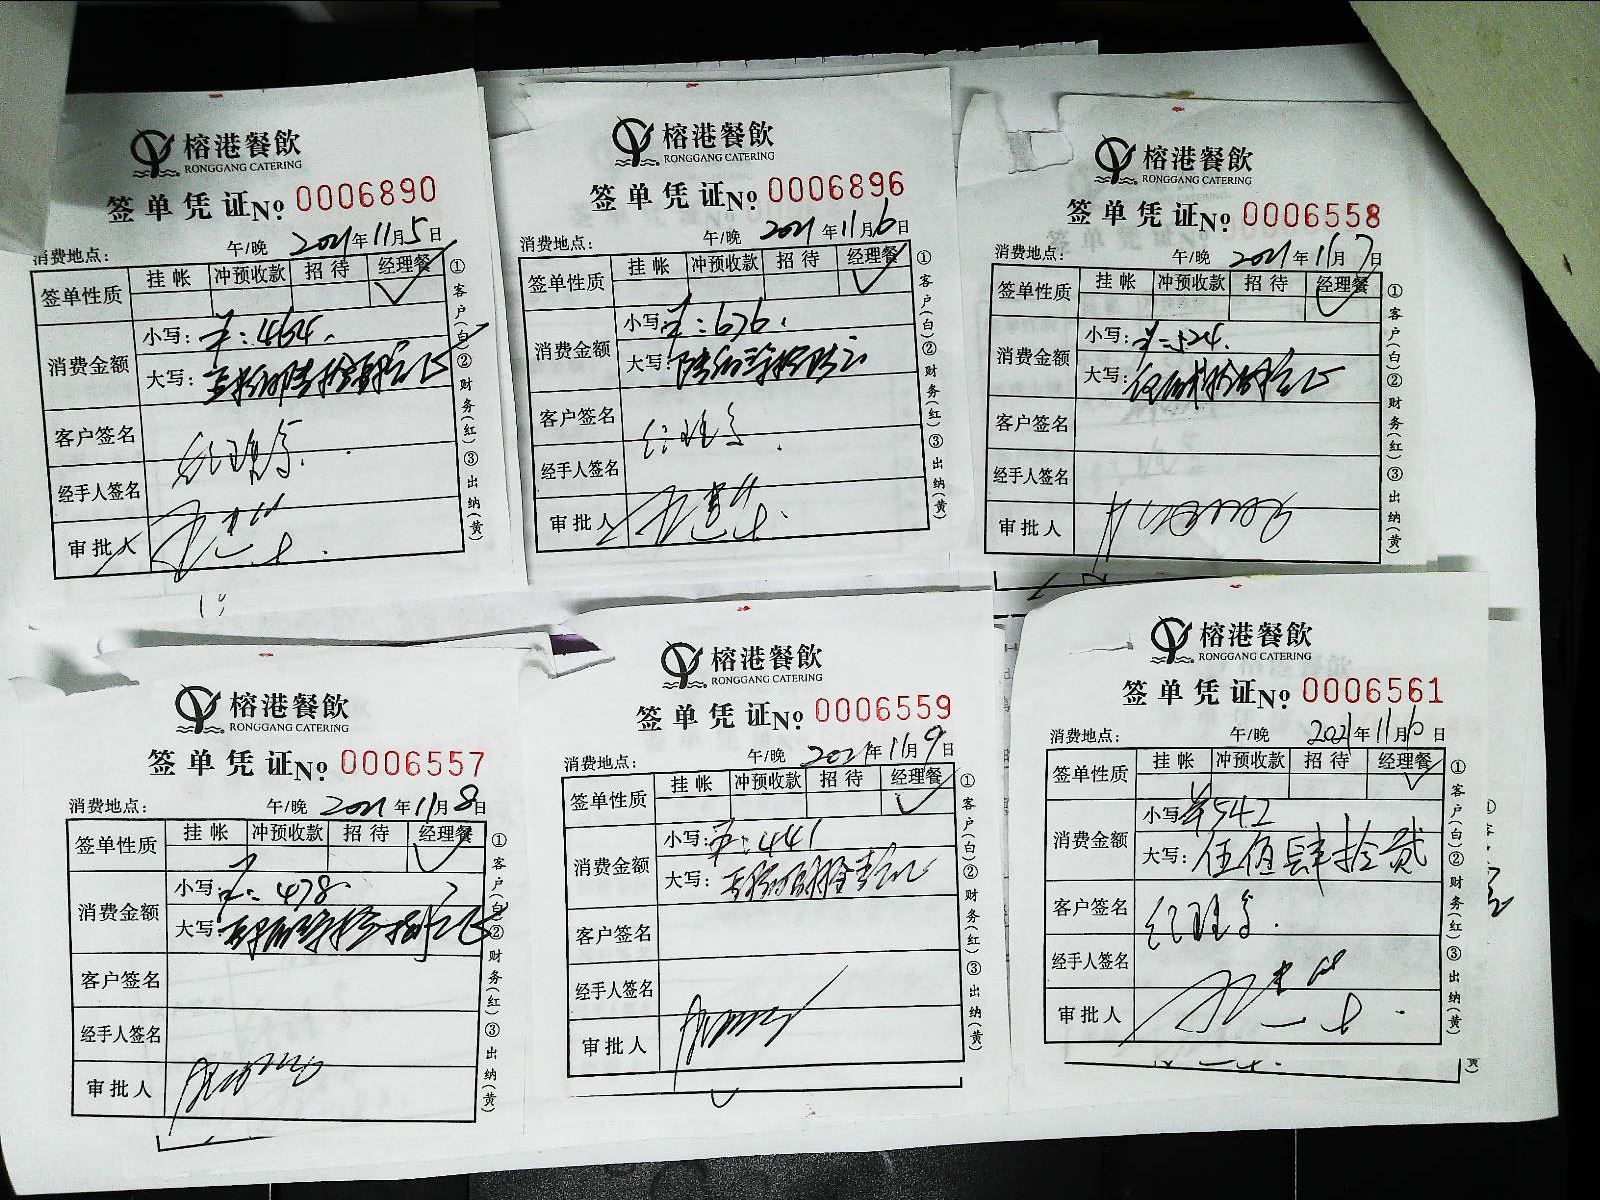 榕港餐飲
RONGGANG CATERING
签单凭证No 0006890
消费地点: 午/晚 2021年11月5日
签单性质 挂帐 冲预收款 招待 经理餐 ✓
消费金额 小写: 464.
大写:
客户签名 经理餐
经手人签名
审批人
①客户(白)②财务(红)③出纳(黄)
榕港餐飲
RONGGANG CATERING
签单凭证No 0006896
消费地点: 午/晚 2021年11月6日
签单性质 挂帐 冲预收款 招待 经理餐 ✓
消费金额 小写: 676.
大写:
客户签名 经理餐
经手人签名
审批人
①客户(白)②财务(红)③出纳(黄)
榕港餐飲
RONGGANG CATERING
签单凭证No 0006558
消费地点: 午/晚 2021年11月7日
签单性质 挂帐 冲预收款 招待 经理餐 ✓
消费金额 小写: 524.
大写:
客户签名
经手人签名
审批人
①客户(白)②财务(红)③出纳(黄)
榕港餐飲
RONGGANG CATERING
签单凭证No 0006557
消费地点: 午/晚 2021年11月8日
签单性质 挂帐 冲预收款 招待 经理餐 ✓
消费金额 小写: 478.
大写:
客户签名
经手人签名
审批人
①客户(白)②财务(红)③出纳(黄)
榕港餐飲
RONGGANG CATERING
签单凭证No 0006559
消费地点: 午/晚 2021年11月9日
签单性质 挂帐 冲预收款 招待 经理餐 ✓
消费金额 小写: 441
大写:
客户签名
经手人签名
审批人
①客户(白)②财务(红)③出纳(黄)
榕港餐飲
RONGGANG CATERING
签单凭证No 0006561
消费地点: 午/晚 2021年11月10日
签单性质 挂帐 冲预收款 招待 经理餐 ✓
消费金额 小写: 542
大写: 伍佰肆拾贰
客户签名 经理餐
经手人签名
审批人
①客户(白)②财务(红)③出纳(黄)